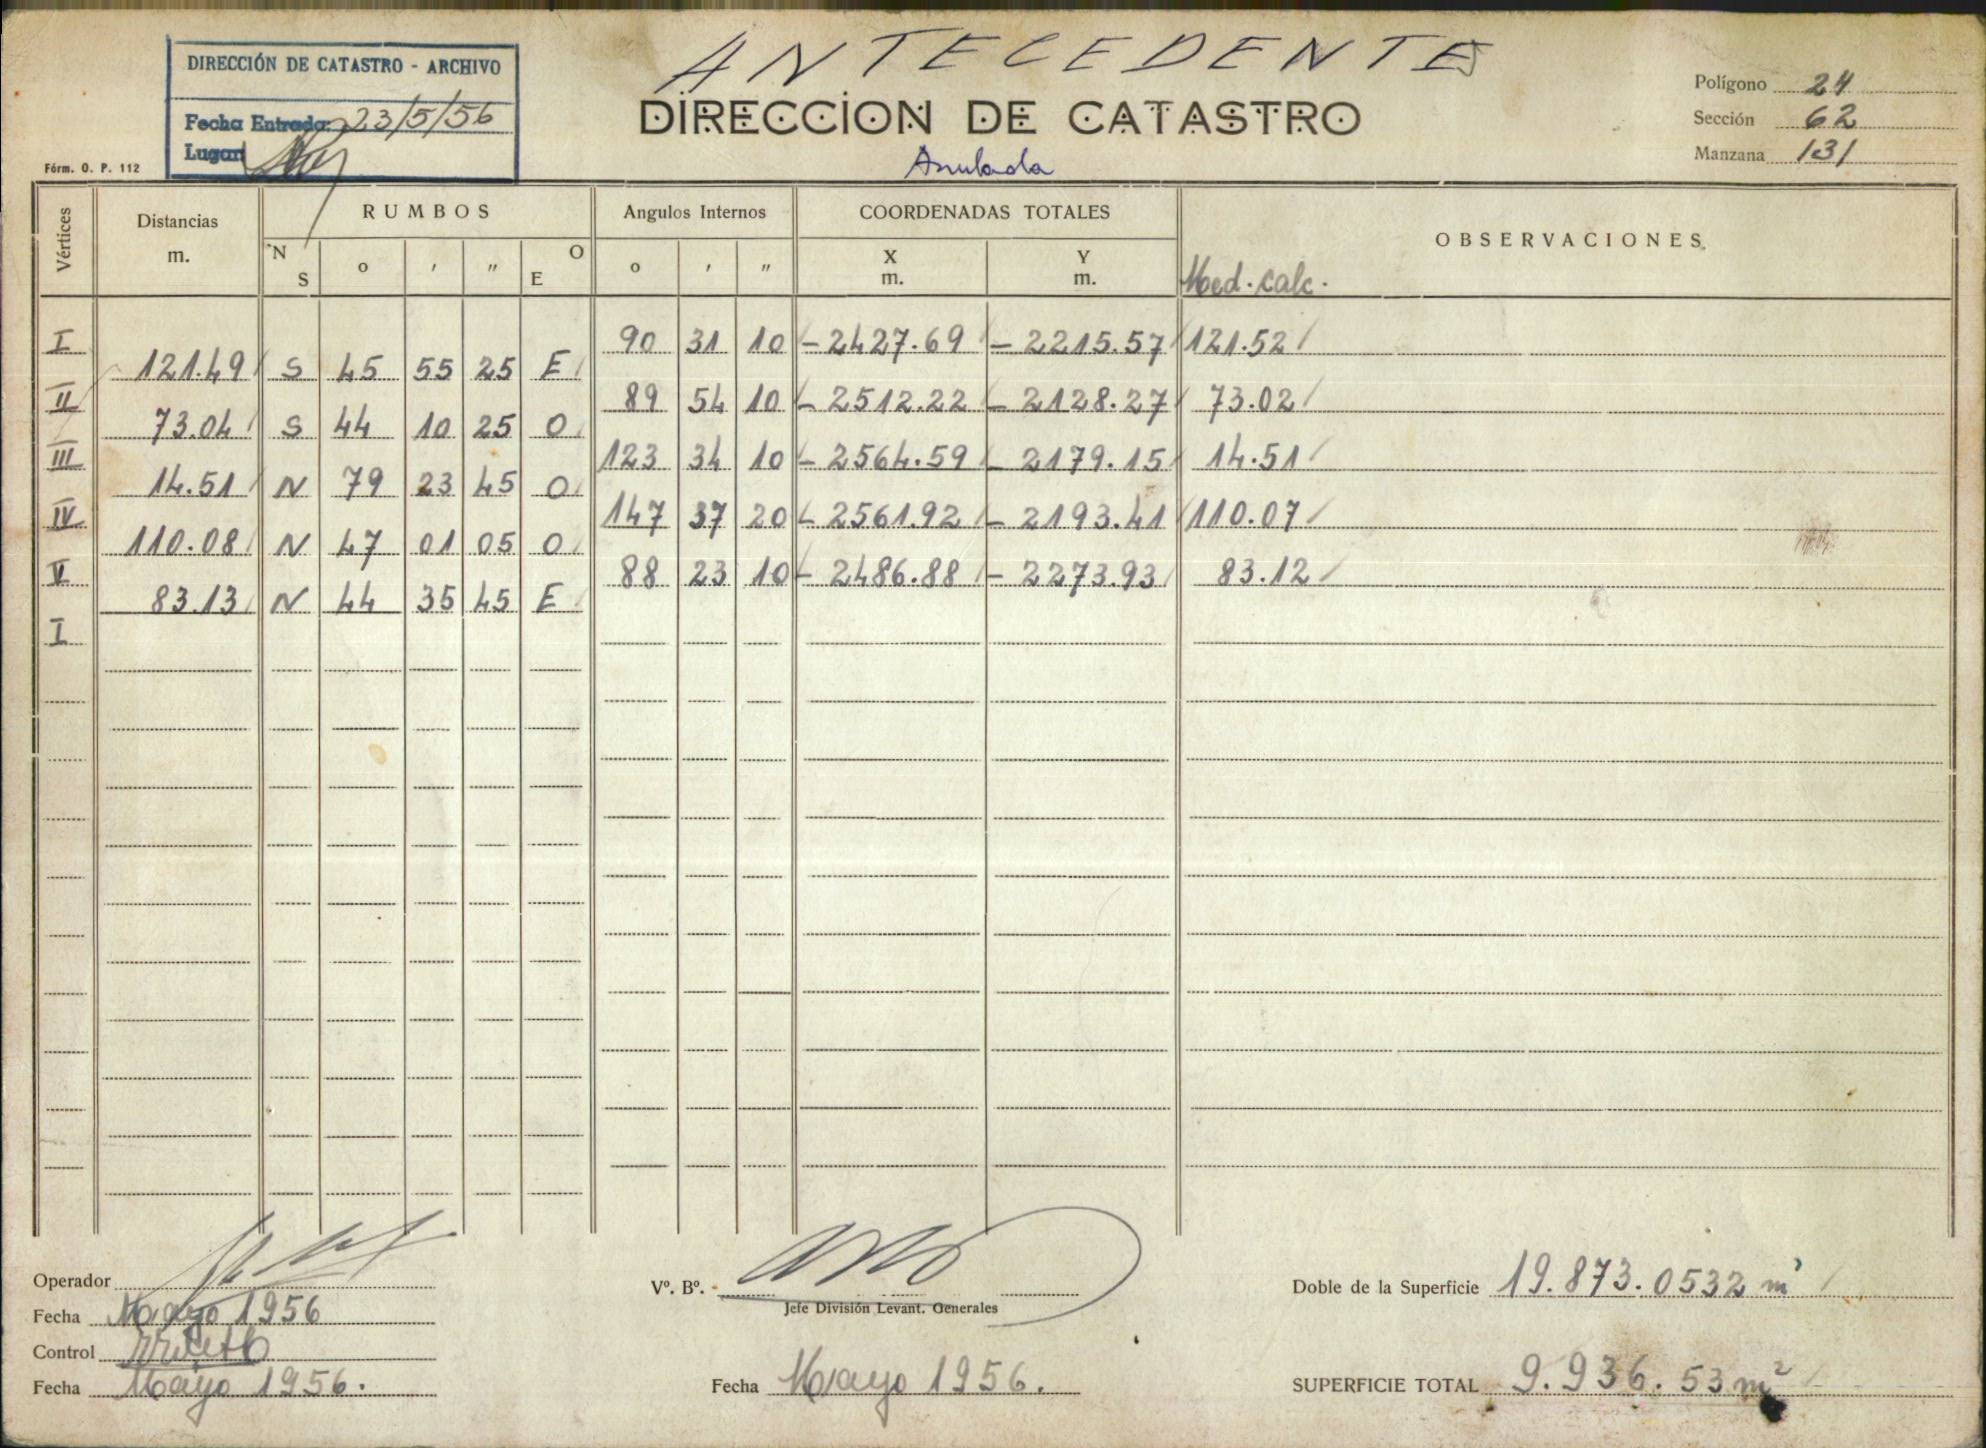 ANTECEDENTE
DIRECCIÓN DE CATASTRO - ARCHIVO
Fecha Entrada: 23/5/56
Lugar
Fórm. O. P. 112
DIRECCION DE CATASTRO
Anulada
Polígono 24
Sección 62
Manzana 131
Vértices Distancias m. RUMBOS Angulos Internos COORDENADAS TOTALES OBSERVACIONES
N S o ' " O E o ' " X m. Y m. Med. calc.
I 90 31 10 - 2427.69 - 2215.57 121.52
121.49 S 45 55 25 E
II 89 54 10 - 2512.22 - 2128.27 73.02
73.04 S 44 10 25 O
III 123 34 10 - 2564.59 - 2179.15 14.51
14.51 N 79 23 45 O
IV 147 37 20 - 2561.92 - 2193.41 110.07
110.08 N 47 01 05 O
V 88 23 10 - 2486.88 - 2273.93 83.12
83.13 N 44 35 45 E
I
Operador
Fecha Mayo 1956
Control
Fecha Mayo 1956.
Vº. Bº.
Jefe División Levant. Generales
Fecha Mayo 1956.
Doble de la Superficie 19.873.0532 m²
SUPERFICIE TOTAL 9.936.53 m²